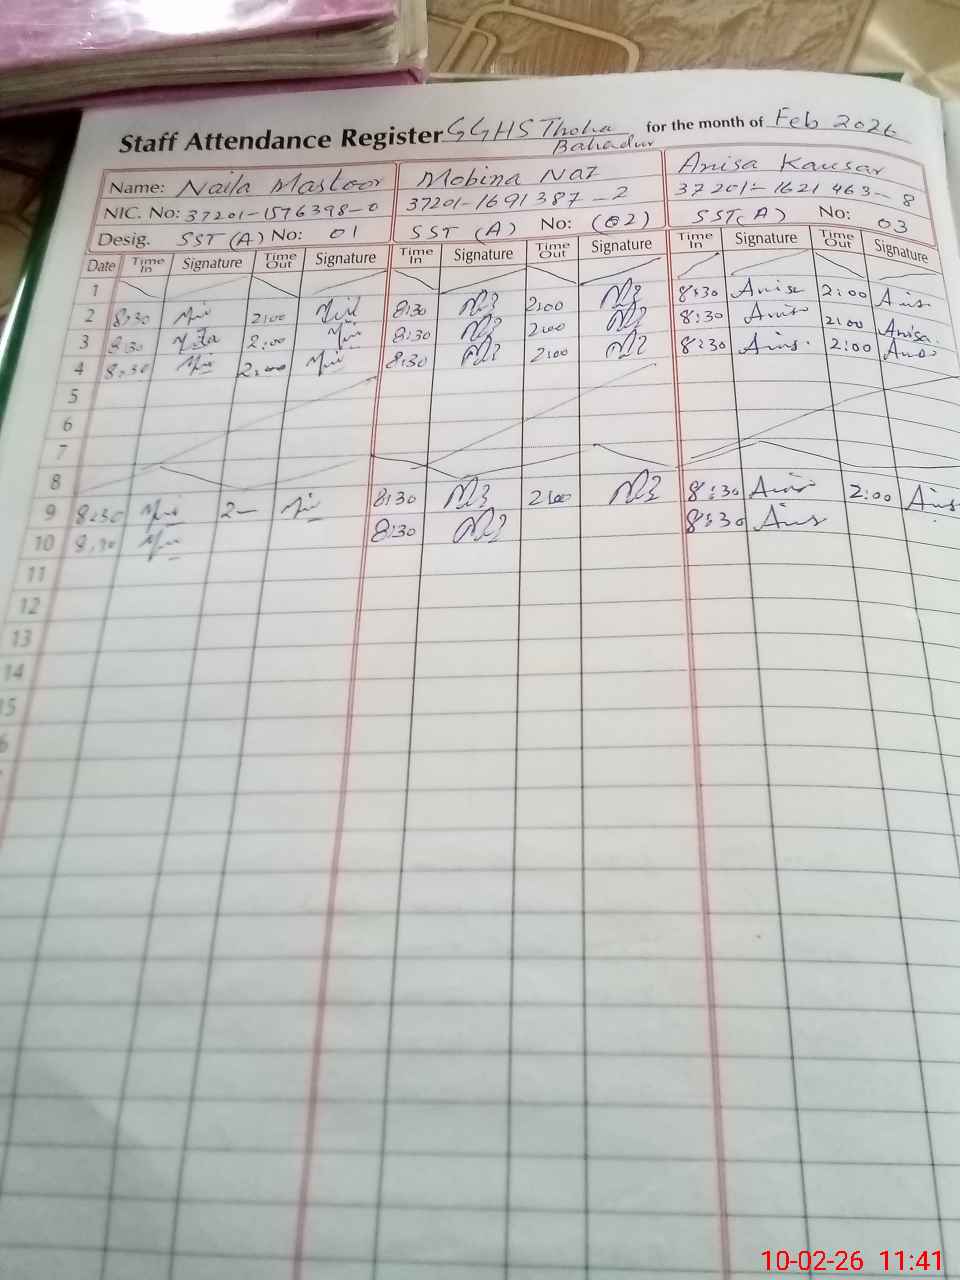 Staff Attendance Register GGHS Thoha Bahadur for the month of Feb 2026
Name: Naila Mastoor Mobina Naz Anisa Kausar
NIC. No: 37201-1576398-0 37201-1691387-2 37201-1621463-8
Desig. SST (A) No: 01 SST (A) No: (02) SST(A) No: 03
Date Time In Signature Time Out Signature Time In Signature Time Out Signature Time In Signature Time Out Signature
1
2 8:30 2:00 8:30 2:00 8:30 Anisa 2:00 Anis
3 8:30 2:00 8:30 2:00 8:30 Anisa 2:00 Anisa
4 8:30 2:00 8:30 2:00 8:30 Anis 2:00 Anis
5
6
7
8
9 8:30 2 8:30 2:00 8:30 Anis 2:00 Anis
10 8:30 8:30 8:30 Anis
11
12
13
14
15
6
10-02-26 11:41